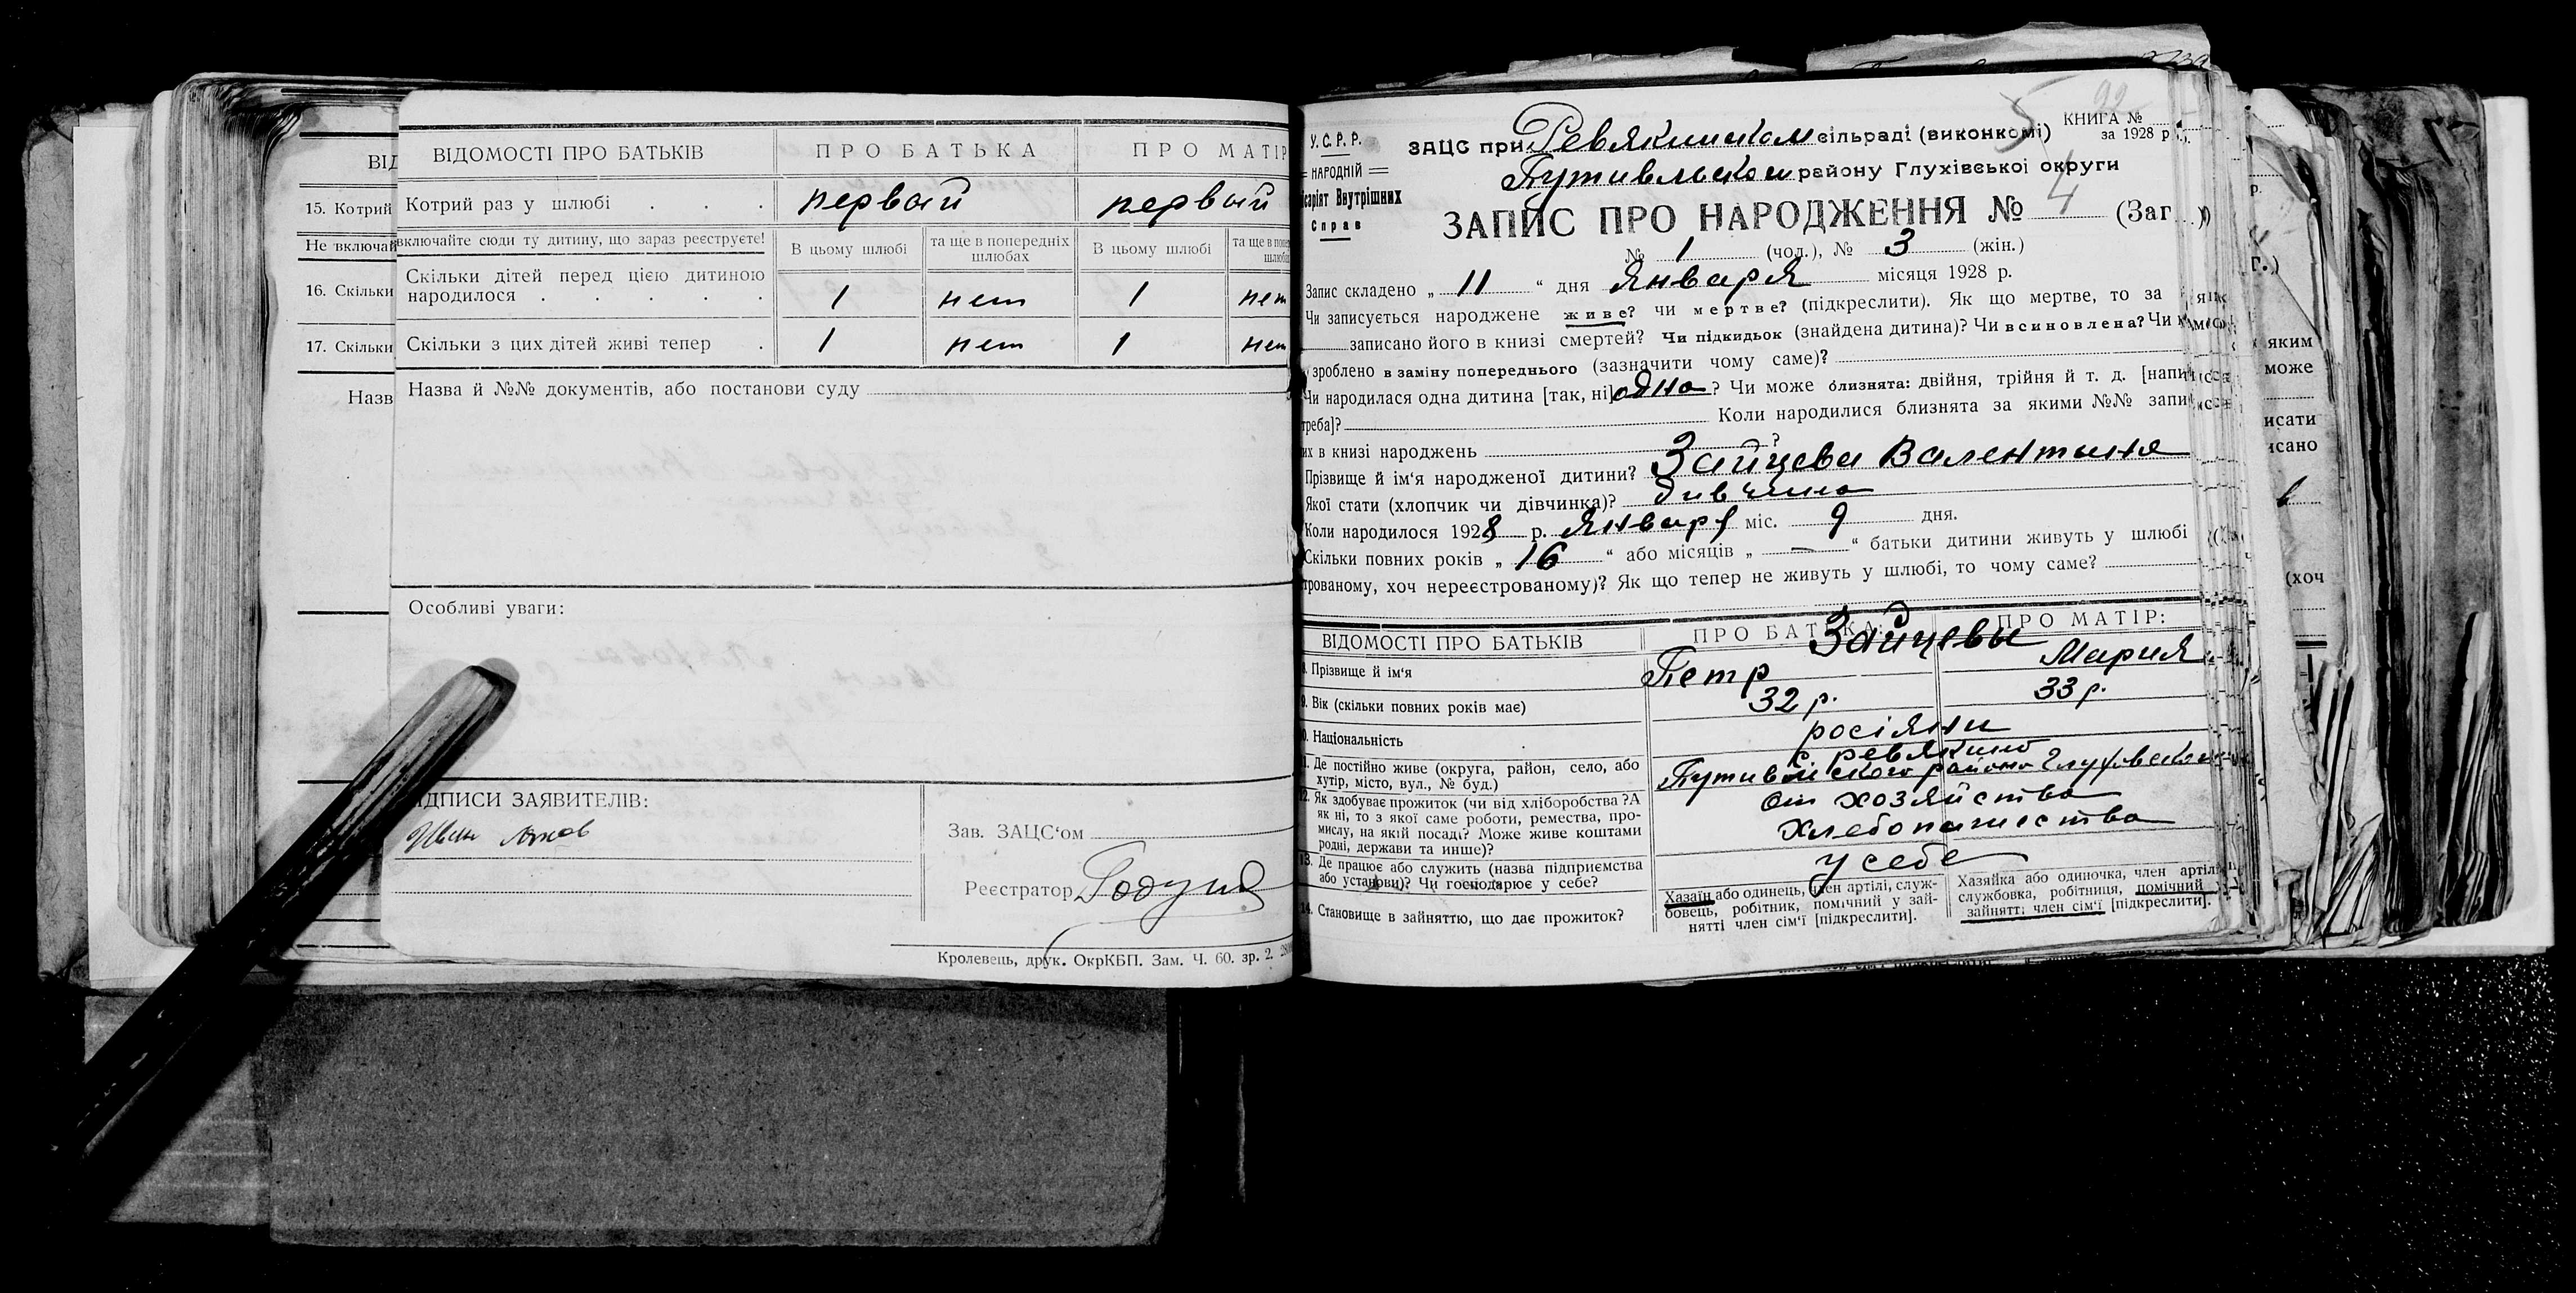 ВІД
15. Котрий
Не включай
16. Скільки
17. Скільки
Назв
ВІДОМОСТІ ПРО БАТЬКІВ ПРО БАТЬКА ПРО МАТІР
Котрий раз у шлюбі . . . первый первый
включайте сюди ту дитину, що зараз реєструєте! В цьому шлюбі та ще в попередніх шлюбах В цьому шлюбі та ще в попе шлюба
Скільки дітей перед цією дитиною
народилося . . . . . 1 нет 1 нет
Скільки з цих дітей живі тепер . 1 нет 1 нет
Назва й №№ документів, або постанови суду
Особливі уваги:
ІДПИСИ ЗАЯВИТЕЛІВ:
Зав. ЗАЦС‘ом
Реєстратор
Кролевець, друк. ОкрКБП. Зам. Ч. 60. зр. 2.
У.С.Р.Р.
НАРОДНІЙ
саріят Внутрішних
Справ
КНИГА №
за 1928 р
5 22
ЗАЦС при Ревякинском сільраді (виконкомі)
Путивльском району Глухівської округи
ЗАПИС ПРО НАРОДЖЕННЯ № 4 (Заг )
№ 1 (чол.), № 3 (жін.)
Запис складено „ 11 “ дня Января місяця 1928 р.
Чи записується народжене живе? чи мертве? (підкреслити). Як що мертве, то за яким
записано його в книзі смертей? Чи підкидьок (знайдена дитина)? Чи всиновлена? Чи
зроблено в заміну попереднього (зазначити чому саме)?
Чи народилася одна дитина [так, ні] одна ? Чи може близнята: двійня, трійня й т. д. [напи
треба]? Коли народилися близнята за якими №№ запи
их в книзі народжень ?
Прізвище й ім‘я народженої дитини? Зайцева Валентина
Якої стати (хлопчик чи дівчинка)? дивчина
Коли народилося 1928 р. Января міс. 9 дня.
Скільки повних років „ 16 “ або місяців „ — “ батьки дитини живуть у шлюбі
трованому, хоч нереєстрованому)? Як що тепер не живуть у шлюбі, то чому саме?
ВІДОМОСТІ ПРО БАТЬКІВ ПРО БАТЬКА: ПРО МАТІР:
Зайцевы
8. Прізвище й ім‘я Петр Мария
9. Вік (скільки повних років має) 32 р. 33 р.
0. Національність росіяни
с ревякино
1. Де постійно живе (округа, район, село, або
хутір, місто, вул., № буд.) Путивльского района Глуховского
2. Як здобуває прожиток (чи від хліборобства? А
як ні, то з якої саме роботи, ремества, про-
мислу, на якій посаді? Може живе коштами
родні, держави та инше)?
от хозяйства
хлебопашества
13. Де працює або служить (назва підприємства
або установи)? Чи господарює у себе? у себе
14. Становище в зайняттю, що дає прожиток?
Хазаїн або одинець, член артілі, служ-
бовець, робітник, помічний у зай-
нятті член сім‘ї [підкреслити].
Хазяйка або одиночка, член артілі
службовка, робітниця, помічний у
зайнятті член сім‘ї [підкреслити].
р.
г.)
яким
може
исати
исано
(хоч